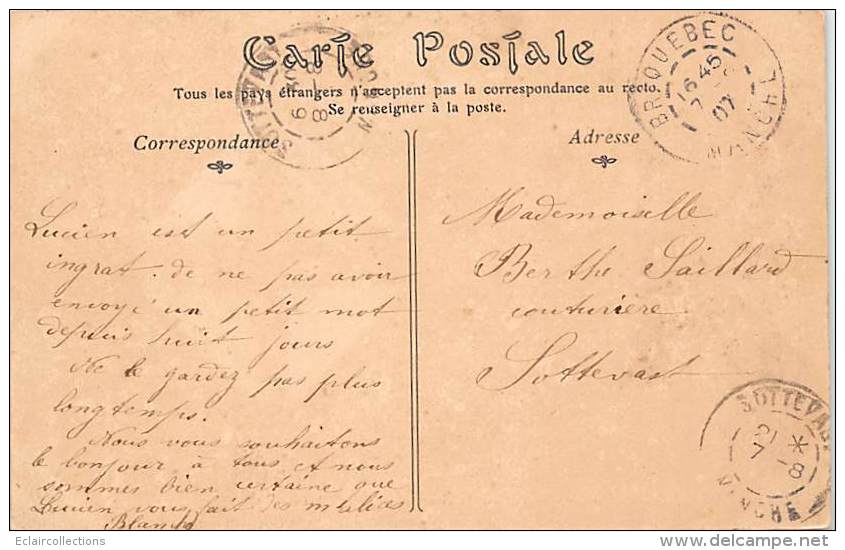 Carte Postale
Tous les pays étrangers n'acceptent pas la correspondance au recto.
Se renseigner à la poste.
Correspondance
Lucien est un petit
ingrat. de ne pas avoir
envoyé un petit mot
depuis huit jours
Ne le gardez pas plus
longtemps.
Nous vous souhaitons
le bonjour à tous et nous
sommes bien certaine que
Lucien vous fait des malices
Blanche
Adresse
Mademoiselle
Berthe Saillard
couturière
Sottevast
BRICQUEBEC
16 45
7 -8
07
MANCHE
SOTTEVAST
8 -8
MANCHE
SOTTEVAST
21 *
7 -8
MANCHE
Eclaircollections
www.delcampe.net